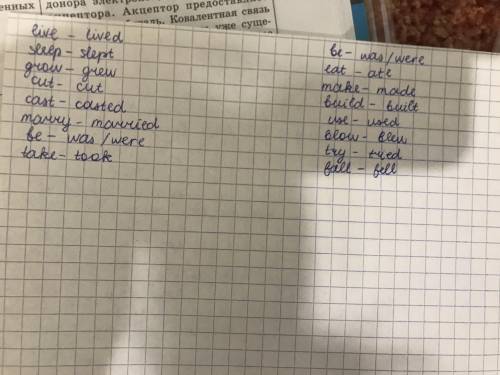 енных
донора электрон
цептора. Акцептор предоставляе
Ковалентная связь
уже суще-
live - lived
sleep - slept
grow - grew
cut - cut
cast - casted
marry - married
be - was/were
take - took
be - was/were
eat - ate
make - made
build - built
use - used
blow - blew
try - tried
fall - fell